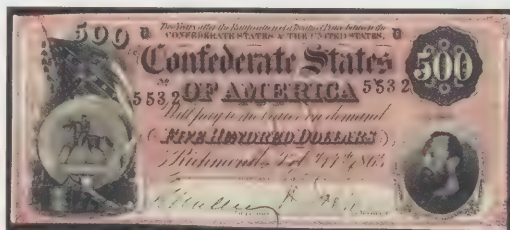 500 D Two Years after the Ratification of a Treaty of Peace between the D
CONFEDERATE STATES & THE UNITED STATES.
Confederate States
500
OF AMERICA
5532 5532
Will pay to the bearer on demand
FIVE HUNDRED DOLLARS
Richmond, Feb 17th 186